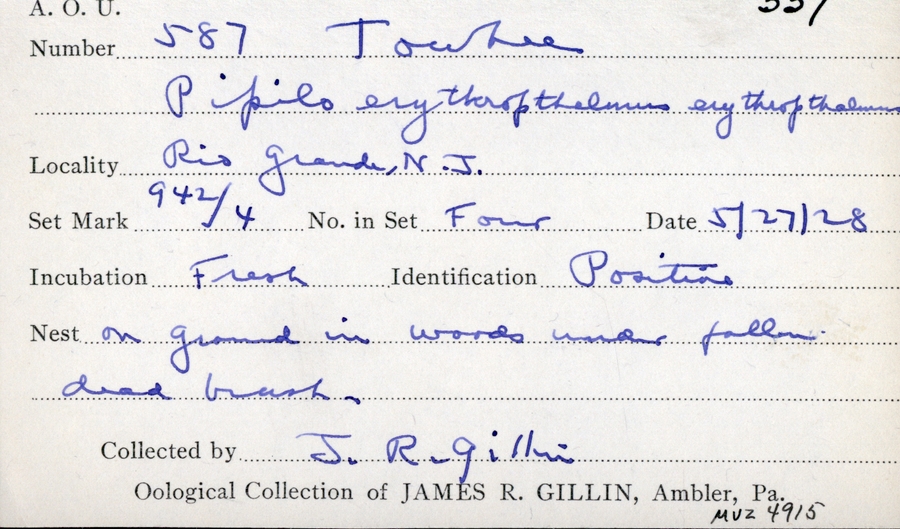 A. O. U.
Number 587 Towhee
Pipilo erythropthalmus erythropthalmus
Locality Rio Grande, N. J.
Set Mark 942/4 No. in Set Four Date 5/27/28
Incubation Fresh Identification Positive
Nest on ground in woods under fallen
dead brush.
Collected by J. R. Gillin
Oological Collection of JAMES R. GILLIN, Ambler, Pa.
MVZ 4915